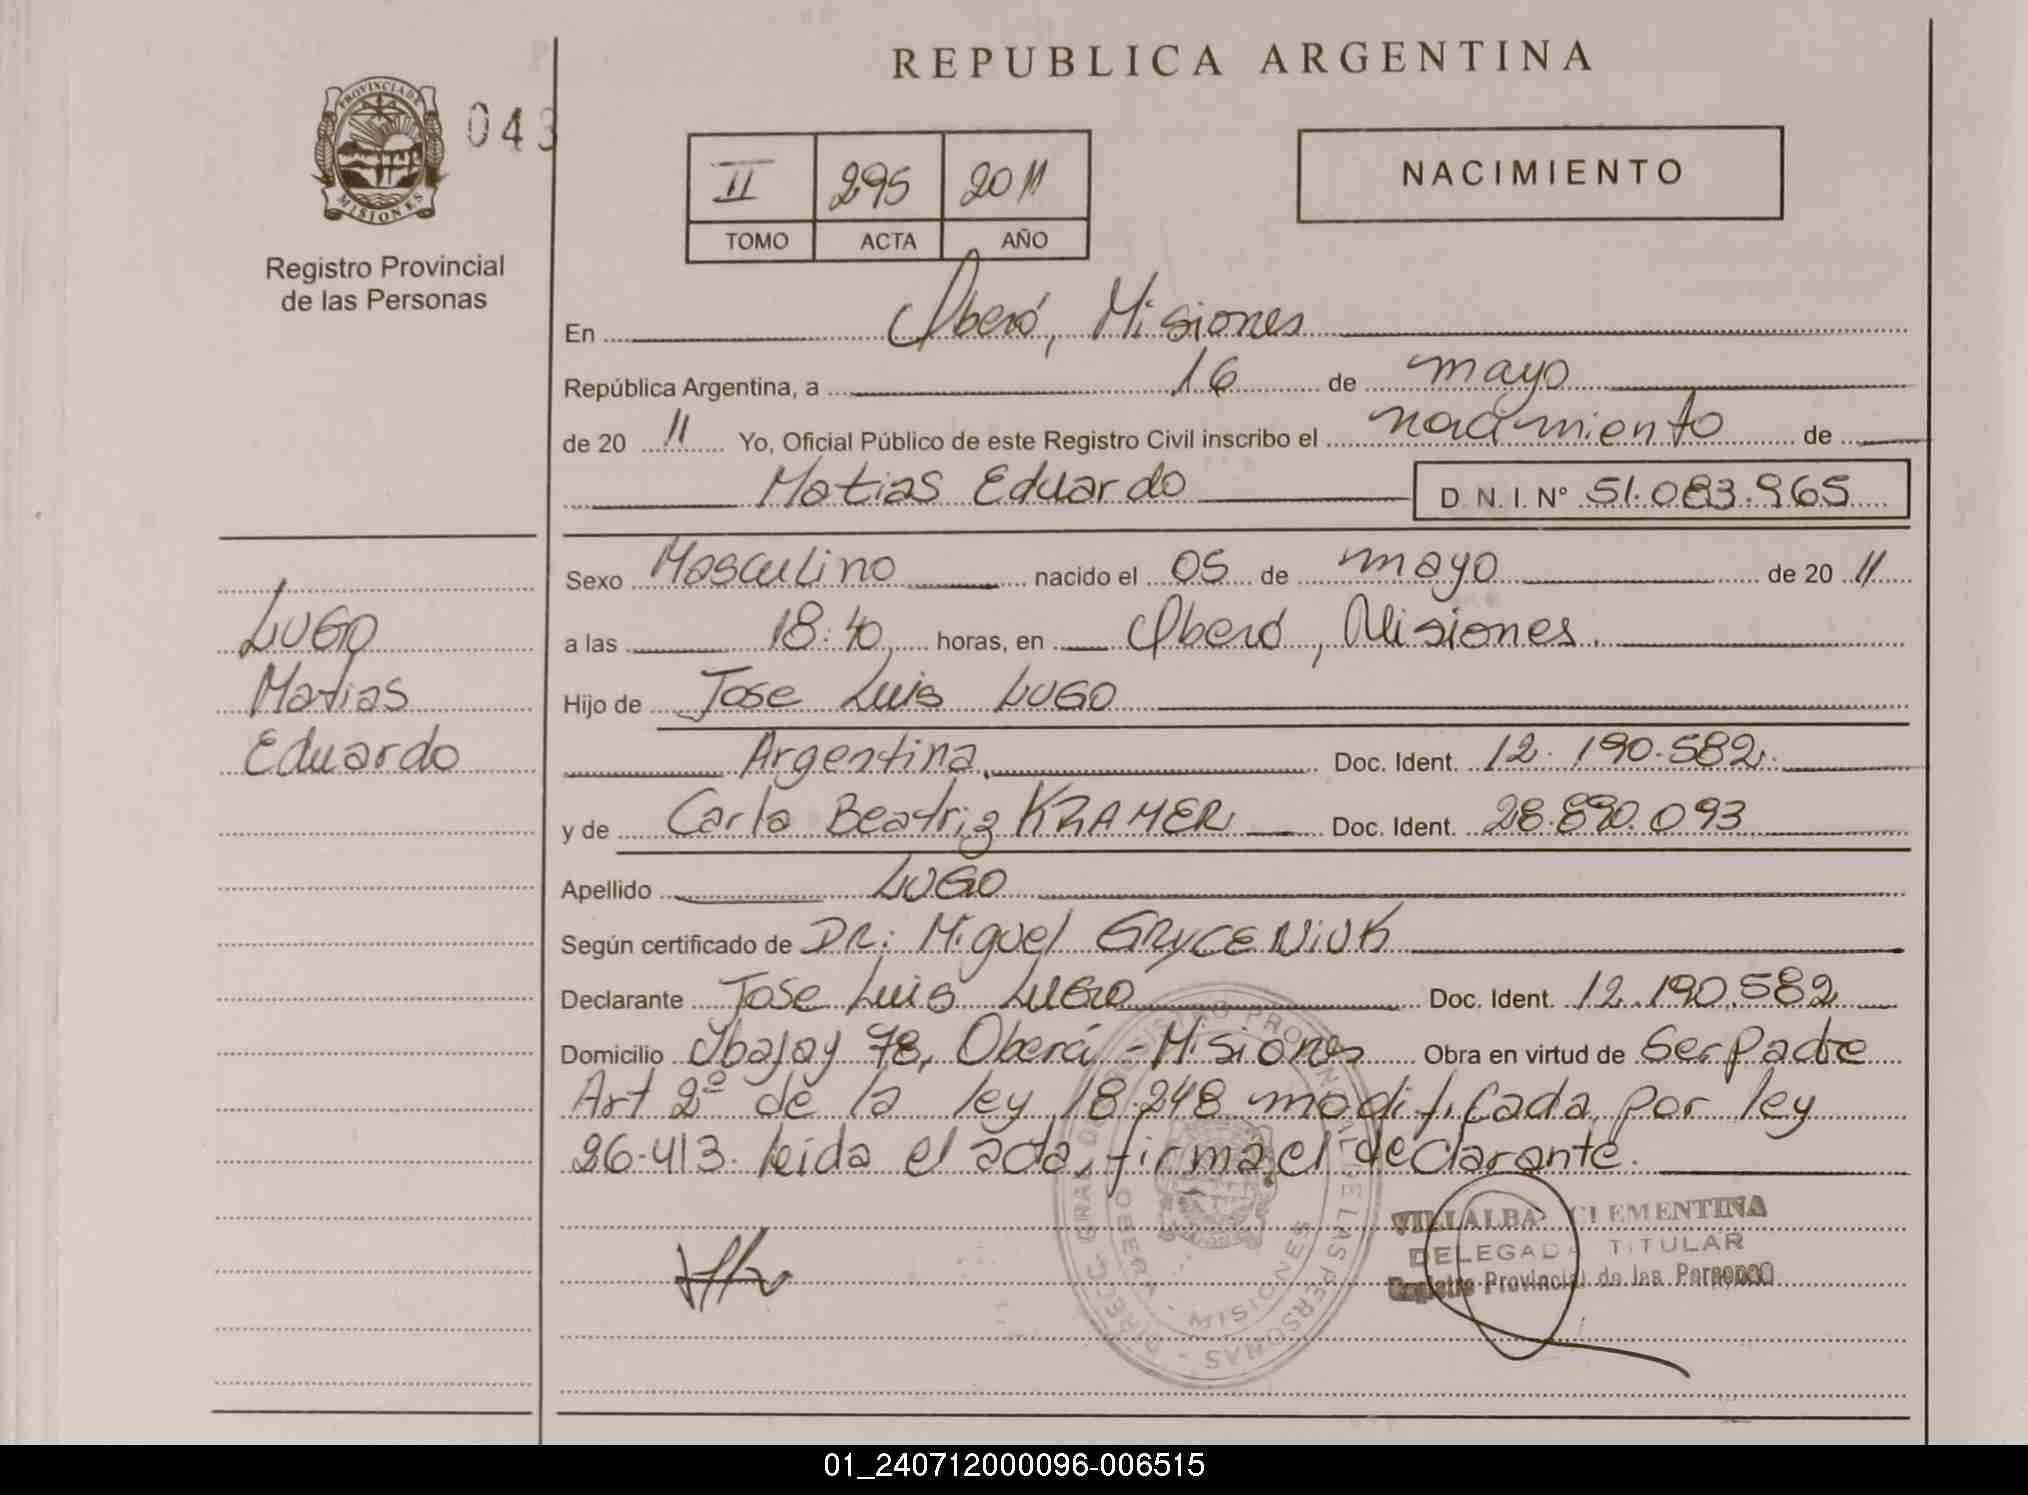 REPUBLICA ARGENTINA
PROVINCIA DE
MISIONES
043
Registro Provincial
de las Personas
II 295 2011
TOMO ACTA AÑO
NACIMIENTO
En Oberá, Misiones
República Argentina, a 16 de mayo
de 20 11 Yo, Oficial Público de este Registro Civil inscribo el nacimiento de
Matias Eduardo D N. I. N° 51.083.965
Sexo Masculino nacido el 05 de mayo de 20 11
a las 18:40 horas, en Oberá, Misiones.
Hijo de Jose Luis LUGO
Argentina, Doc. Ident. 12.190.582
y de Carla Beatriz KRAMER Doc. Ident. 28.890.093
Apellido LUGO
Según certificado de DR: Miguel GRYCENIUK
Declarante Jose Luis LUGO Doc. Ident. 12.190.582
Domicilio Ibajay 78, Oberá - Misiones Obra en virtud de Ser Padre
Art 2º de la ley 18.248 modificada por ley
26.413. leida el acta, firma el declarante.
LUGO
Matias
Eduardo
VILLALBA CLEMENTINA
DELEGADA TITULAR
Registro Provincial de las Personas
DIRECC. GRAL. DE REGISTRO PROVINCIAL DE LAS PERSONAS
OBERA - MISIONES
01_240712000096-006515